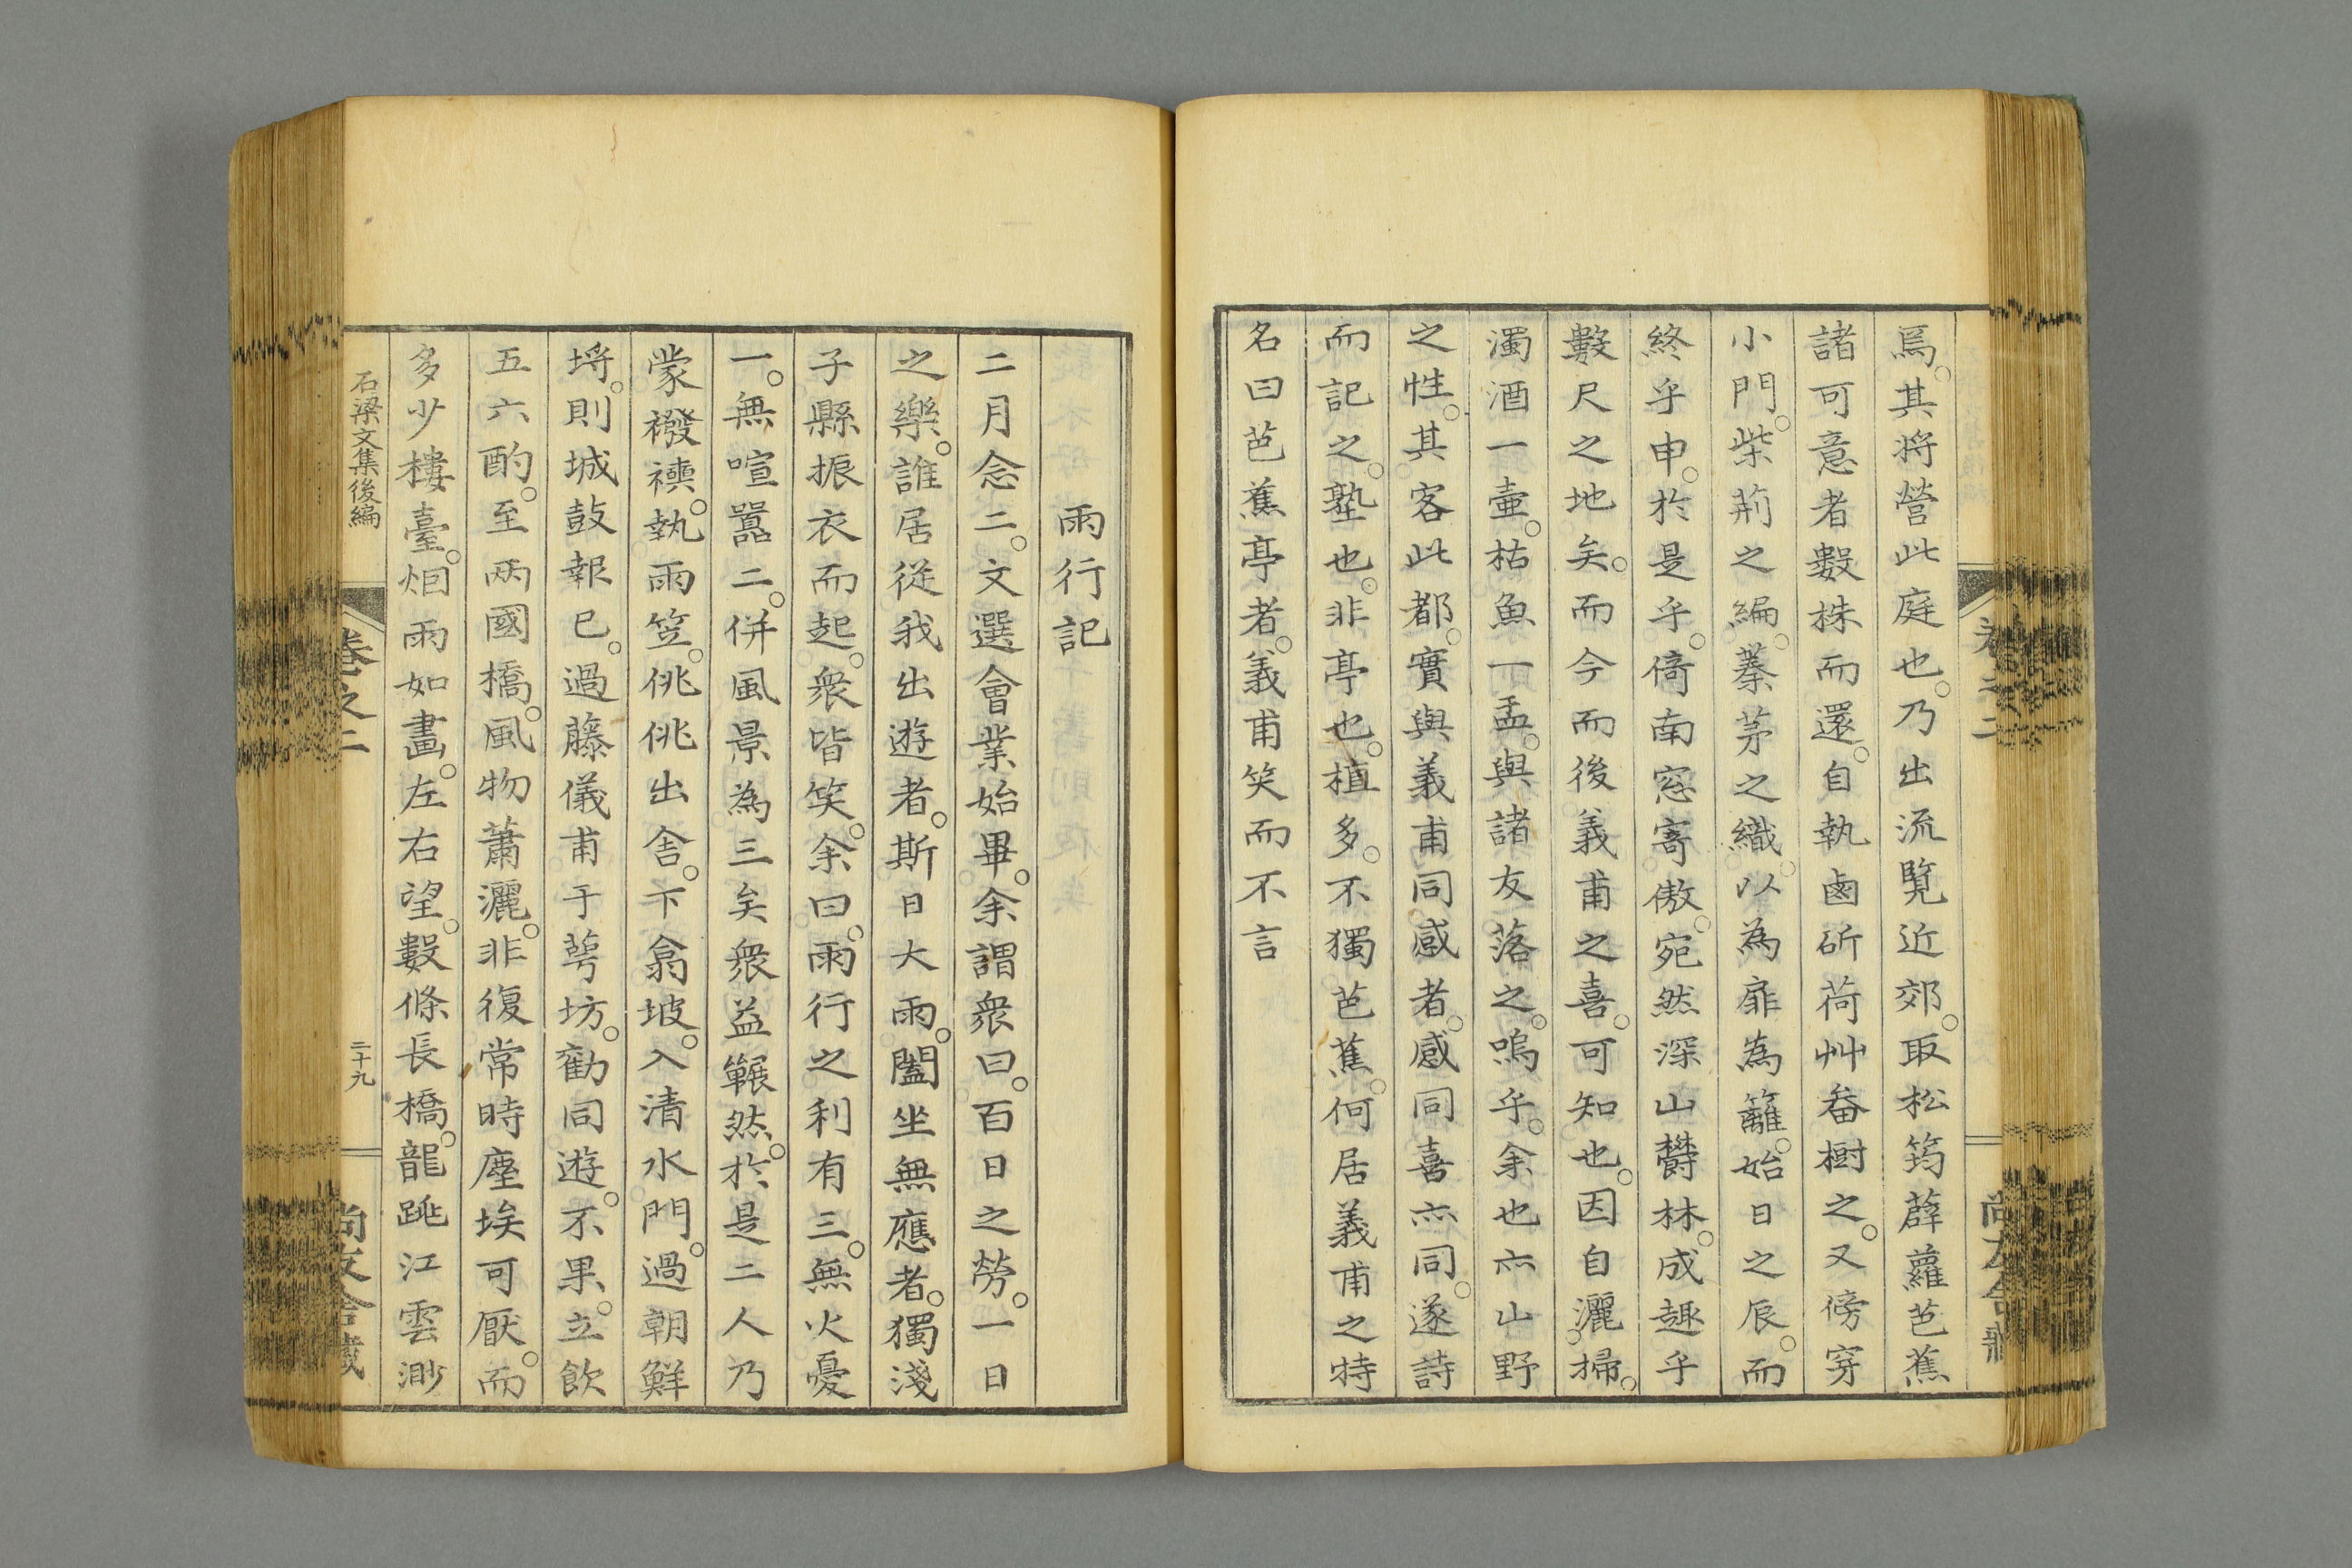 焉。其将營此庭也。乃出流覽近郊。取松筠薜蘿芭蕉
諸可意者數株而還。自執鹵斫荷艸畚樹之。又傍穿
小門。柴荊之編。蓁茅之織。以為扉為籬。始日之辰。而
終乎申。於是乎。倚南窓寄傲。宛然深山欝林。成趣乎
數尺之地矣。而今而後義甫之喜。可知也。因自灑。掃。
濁酒一壷。枯魚一盂。與諸友落之。嗚乎。余也亦山野
之性。其客此都。實與義甫同感者。感同喜亦同。遂詩
而記之。塾也。非亭也。植多。不獨芭蕉。何居義甫之特
名曰芭蕉亭者。義甫笑而不言
雨行記
二月念二。文選會業始畢。余謂衆曰。百日之勞。一日
之樂。誰居従我出遊者。斯日大雨。闔坐無應者。獨淺
子縣振衣而起。衆皆笑。余曰。雨行之利有三。無火憂
一。無喧囂二。併風景為三矣衆益冁然。於是二人乃
蒙襏襫。執雨笠。佻佻出舎。下翕坡。入清水門。過朝鮮
埓。則城鼓報巳。過藤儀甫于蕚坊。勸同遊。不果。立飲
五六酌。至両國橋。風物蕭灑。非復常時塵埃可厭。而
多少樓臺。烟雨如畫。左右望。數條長橋。龍跳江雲渺
石梁文集後編
卷之二
二十九
尚友舎藏